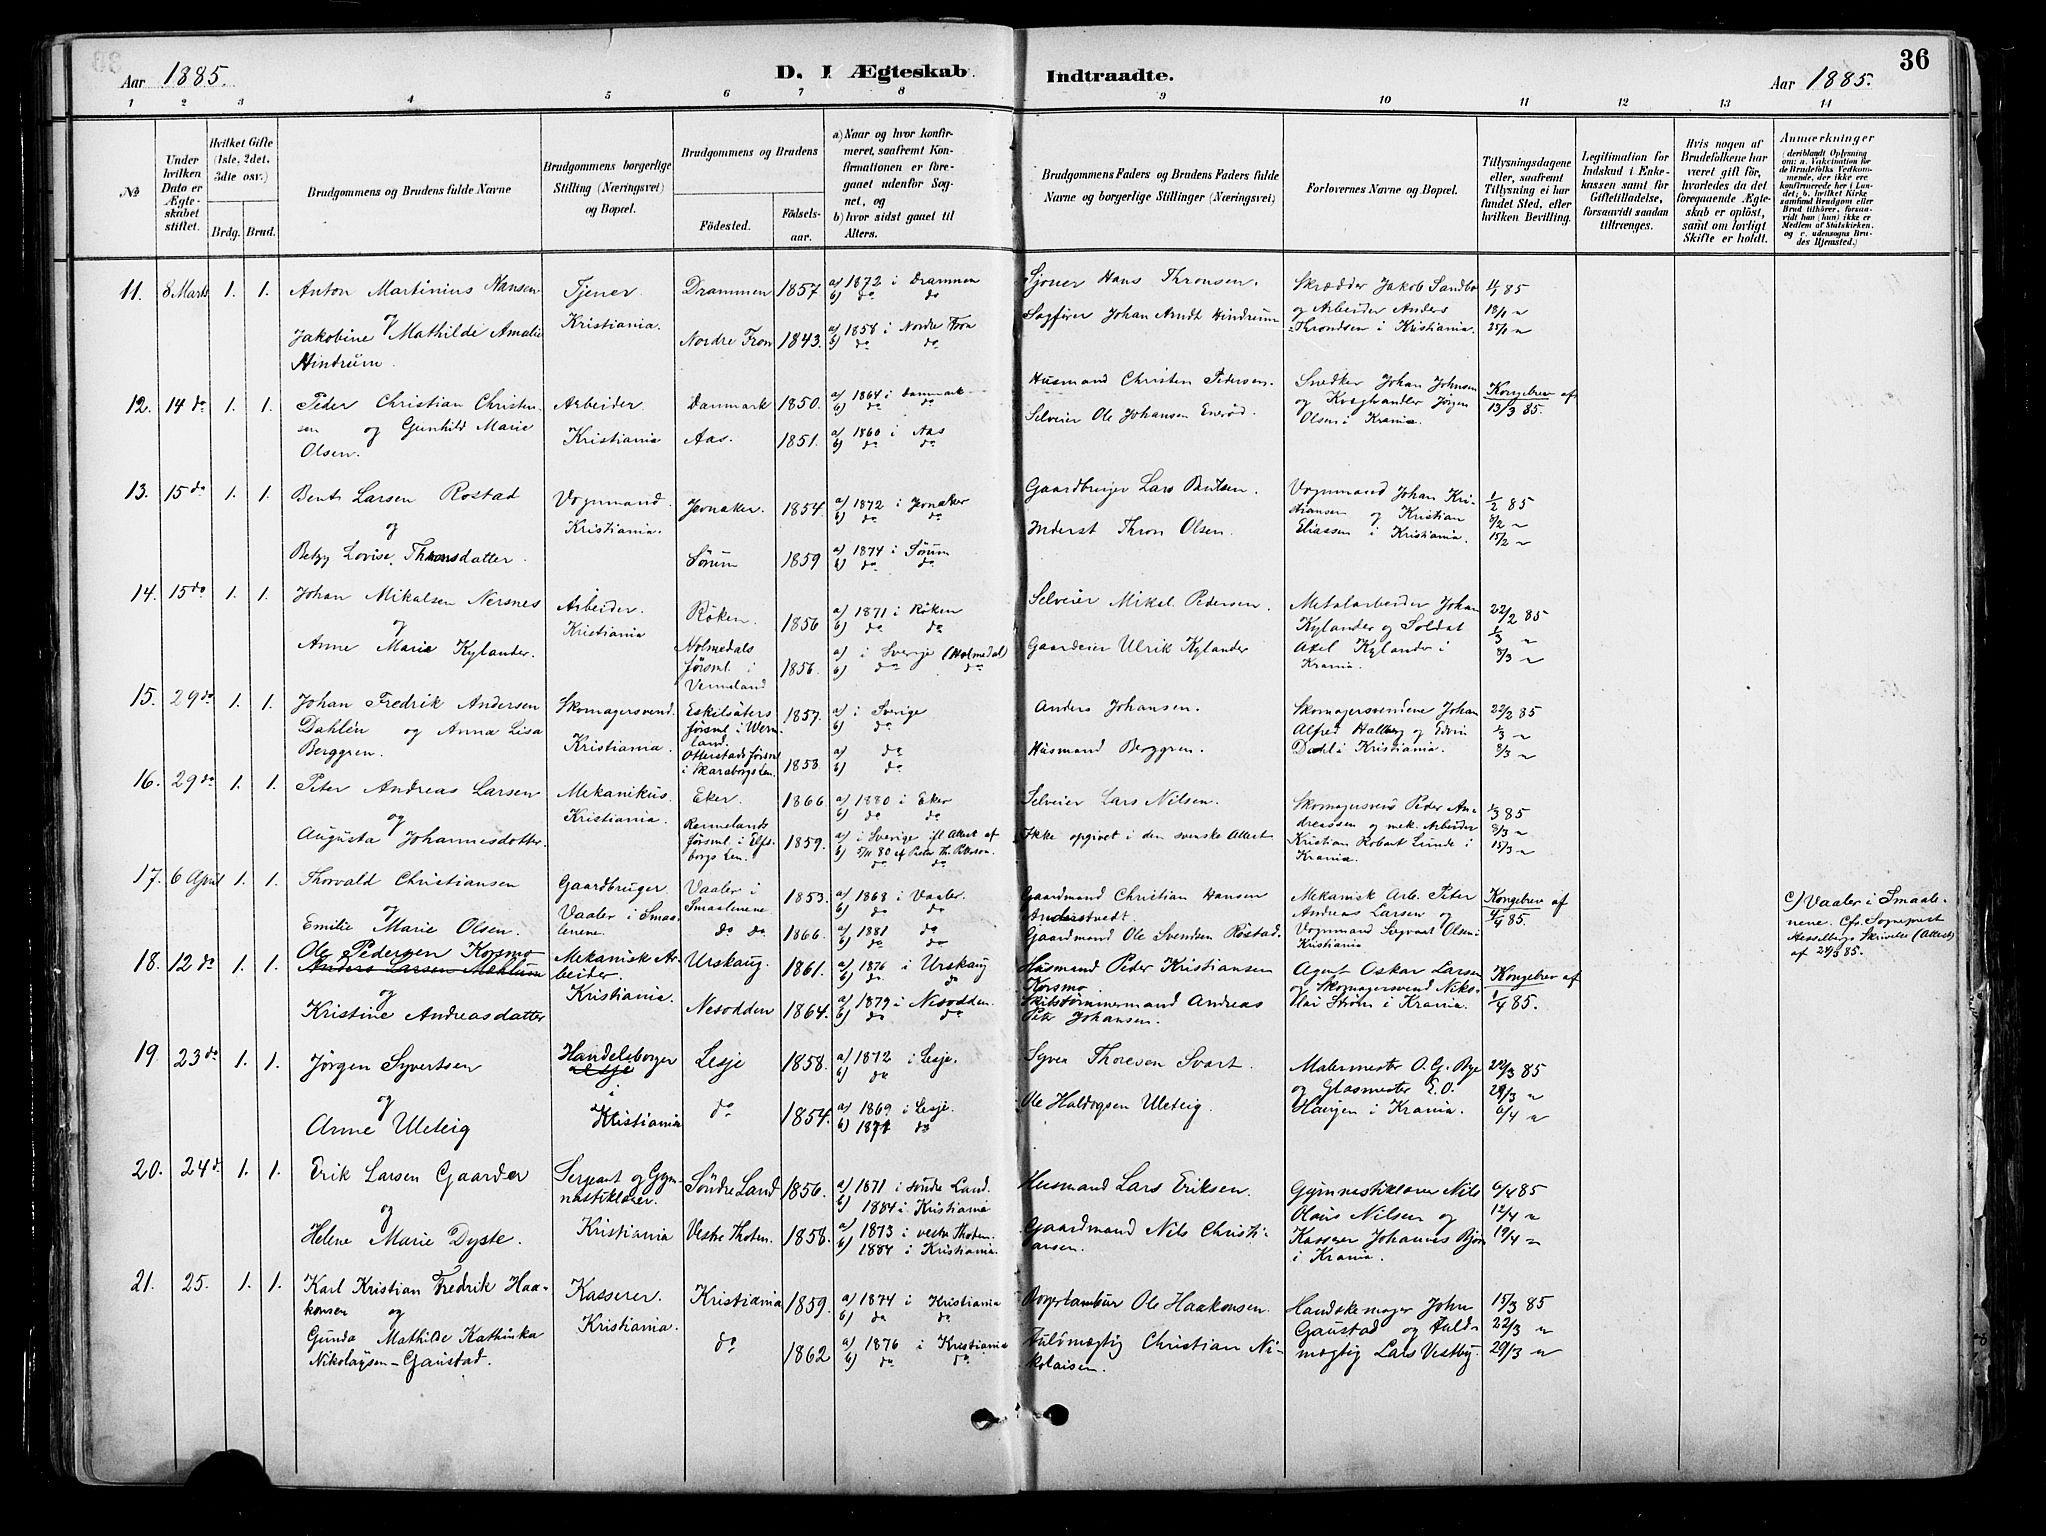 Aar 1885.
D. I Ægteskab Indtraadte.
Aar 1885.
36
1 2 3 4 5 6 7 8 9 10 11 12 13 14
No
Under hvilken Dato er Ægteskabet stiftet.
Hvilket Gifte (1ste, 2det, 3die osv.)
Brdg. Brud.
Brudgommens og Brudens fulde Navne
Brudgommens borgerlige Stilling (Næringsvei) og Bopæl.
Brudgommens og Brudens
Fødested.
Fødselsaar.
a) Naar og hvor konfirmeret, saafremt Konfirmationen er foregaaet udenfor Sognet, og
b) hvor sidst gaaet til Alters.
Brudgommens Faders og Brudens Faders fulde Navne og borgerlige Stillinger (Næringsvei)
Forlovernes Navne og Bopæl.
Tillysningsdagene eller, saafremt Tillysning ei har fundet Sted, efter hvilken Bevilling.
Legitimation for Indskud i Enkekassen samt for Giftetilladelse, forsaavidt saadan tiltrænges.
Hvis nogen af Brudefolkene har været gift før, hvorledes da det foregaaende Ægteskab er opløst, samt om lovligt Skifte er holdt.
Anmærkninger
(deriblandt Oplysning om: a. Vakcination for de Brudefolks Vedkommende, der ikke ere konfirmerede her i Landet; b. hvilket Kirkesamfund Brudgom eller Brud tilhører, forsaavidt han (hun) ikke er Medlem af Statskirken, og c. udensogns Brudes Hjemsted.)
11. 8 Marts 1. 1. Anton Martinius Hansen
og
Jakobine Mathilde Amalie
Hindrum.
Tjener.
Kristiania.
Drammen 1857 a) 1872 i Drammen
b) do do
Nordre Fron 1843. a) 1858 i Nordre Fron
b) do do
Hans Thronsen.
Sagfører Johan Arndt Hindrum
Skrædder Jakob Sandbo
og Arbeider Anders
Throndsen i Kristiania.
11/1 85
18/1 "
25/1 "
12. 14 do 1. 1. Peder Christian Christen-
sen og Gunhild Marie
Olsen.
Arbeider
Kristiania
Danmark 1850. a) 1864 i Danmark
b) do do
Aas. 1851. a) 1860 i Aas
b) do do
Husmand Christen Pedersen.
Selveier Ole Johansen Enerød.
Snedker Johan Johnsen
og Kvæghandler Jørgen
Olsen i Krania.
Kongebrev af
13/3 85.
13. 15 do 1. 1. Bent Larsen Rostad
og
Betzy Lovise Thronsdatter.
Vognmand.
Kristiania.
Jevnaker. 1854. a) 1872 i Jevnaker
b) do do
Sørum 1859 a) 1874 i Sørum
b) do do
Gaardbruger Lars Bentsen.
Inderst Thron Olsen.
Vognmand Johan Kri-
stiansen og Kristian
Eliassen i Kristiania.
1/2 85
8/2 "
15/2 "
14. 15 do 1. 1. Johan Mikalsen Nersnes
og
Anne Marie Kylander.
Arbeider.
Kristiania
Røken. 1856 a) 1871 i Røken
b) do do
Holmedals
førsml. i
Vermeland
1856. a) i Sverje (Holmedal)
b) do do
Selveier Mikal Pedersen.
Gaardeier Ulrik Kylander
Metalarbeider Johan
Kylander og Soldat
Axel Kylander i
Krania.
22/2 85
1/3 "
8/3 "
15. 29 do 1. 1. Johan Fredrik Andersen
Dahlén og Anna Lisa
Berggren.
Skomagersvend.
Kristiania.
Eskilsäters
førsml i Werm-
land.
1857. a) i Sverige
b) do
Otterstads førsml
i Skaraborgs Len.
1853. a) do
b) do
Anders Johansen.
Husmand Berggren.
Skomagersvendene Johan
Alfred Hallberg og Edvin
Dahl i Kristiania.
22/2 85
1/3 "
8/3 "
16. 29 do 1. 1. Peter Andreas Larsen
og
Augusta Johannesdotter.
Mekanikus.
Kristiania.
Eker. 1866 a) 1880 i Eker
b) do do
førsml. i Elfs-
borgs Len.
1859. a) i Sverige ifl. Attest af
b) 5/11 80 af Pastor Th. Peterson.
do do
Selveier Lars Nilsen.
Ikke opgivet i den svenske Attest
Skomagersvend Peder An-
dreassen og mek. Arbeider
Kristian Robert Lunde i
Krania.
1/3 85
8/3 "
15/3 "
17. 6 April 1. 1. Thorvald Christiansen
og
Emilie Marie Olsen.
Gaardbruger
Vaaler i Smaa-
lenene.
Vaaler i
Smaalenene
1853. a) 1868 i Vaaler.
b) do do
do do 1866. a) 1881 do
b) do do
Gaardmand Christian Hansen
Anderstvedt.
Gaardmand Ole Svendsen Rostad.
Mekanisk Arb. Peter
Andreas Larsen og
Vognmand Sigvart Olsen
Kristiania
Kongebrev af
4/4 85.
c) Vaaler i Smaale-
nene. Cfr. Sognepræst
Hesselbergs Skrivelse (Attest)
af 24/3 85.
18. 12 do 1. 1. Ole Pedersen Korsmo
Anders Larsen Mehlum
og
Kristine Andreasdatter
Mekanisk Ar-
beider.
Kristiania.
Urskaug. 1861. a) 1876 i Urskaug
b) do do
Nesodden 1864. a) 1879 i Nesodden.
b) do do
Husmand Peder Kristiansen
Korsmo
Skibstømmermand Andreas
Petr Johansen.
Agent Oskar Larsen
og Skomagersvend Niko-
lai Strøm i Krania.
Kongebrev af
1/4 85.
19. 23 do 1. 1. Jørgen Syvertsen
og
Anne Uleteig
Handelsborger
Lesje
i
Kristiania
Lesje 1858. a) 1872 i Lesje.
b) do
do 1854. a) 1869 i Lesje.
b) 1871 do
Syver Thoresen Svart.
Ole Haldogsen Uleteig.
Malermester O. G. Bye
og Glasmester E. O.
Haugen i Krania.
22/3 85
29/3 "
6/4 "
20. 24 d. 1. 1. Erik Larsen Gaarder
og
Helene Marie Dyste.
Sergeant og Gym-
nastiklærer.
Kristiania
Søndre Land 1856. a) 1871 i søndre Land.
b) 1884 i Kristiania
Vestre Thoten. 1858. a) 1873 i vestre Thoten.
b) 1884 i Kristiania.
Husmand Lars Eriksen.
Gaardmand Nils Christi-
Larsen.
Gymnastiklærer Nils
Olaus Nilsen og
Kasserer Johannes Bjør
i Krania.
6/4 85
12/4 "
19/4 "
21. 25. 1. 1. Karl Kristian Fredrik Haa-
konsen og
Gunda Mathilde Kathinka
Nikolaysen-Gaustad.
Kasserer.
Kristiania.
Kristiania 1859. a) 1874 i Kristiania
b) do do
do 1862 a) 1876 i Kristiania
b) do do
Ole Haakonsen.
Fuldmægtig Christian Ni-
kolaisen.
Handskemager John
Gaustad og Fuld-
mægtig Lars Vestby.
15/3 85
22/3 "
29/3 "